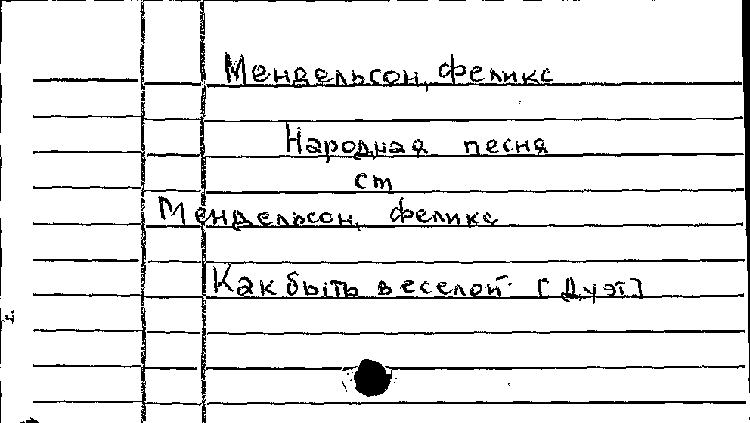 Мендельсон, Феликс
Народная песня
см
Мендельсон, Феликс
Как быть веселой [Дуэт]